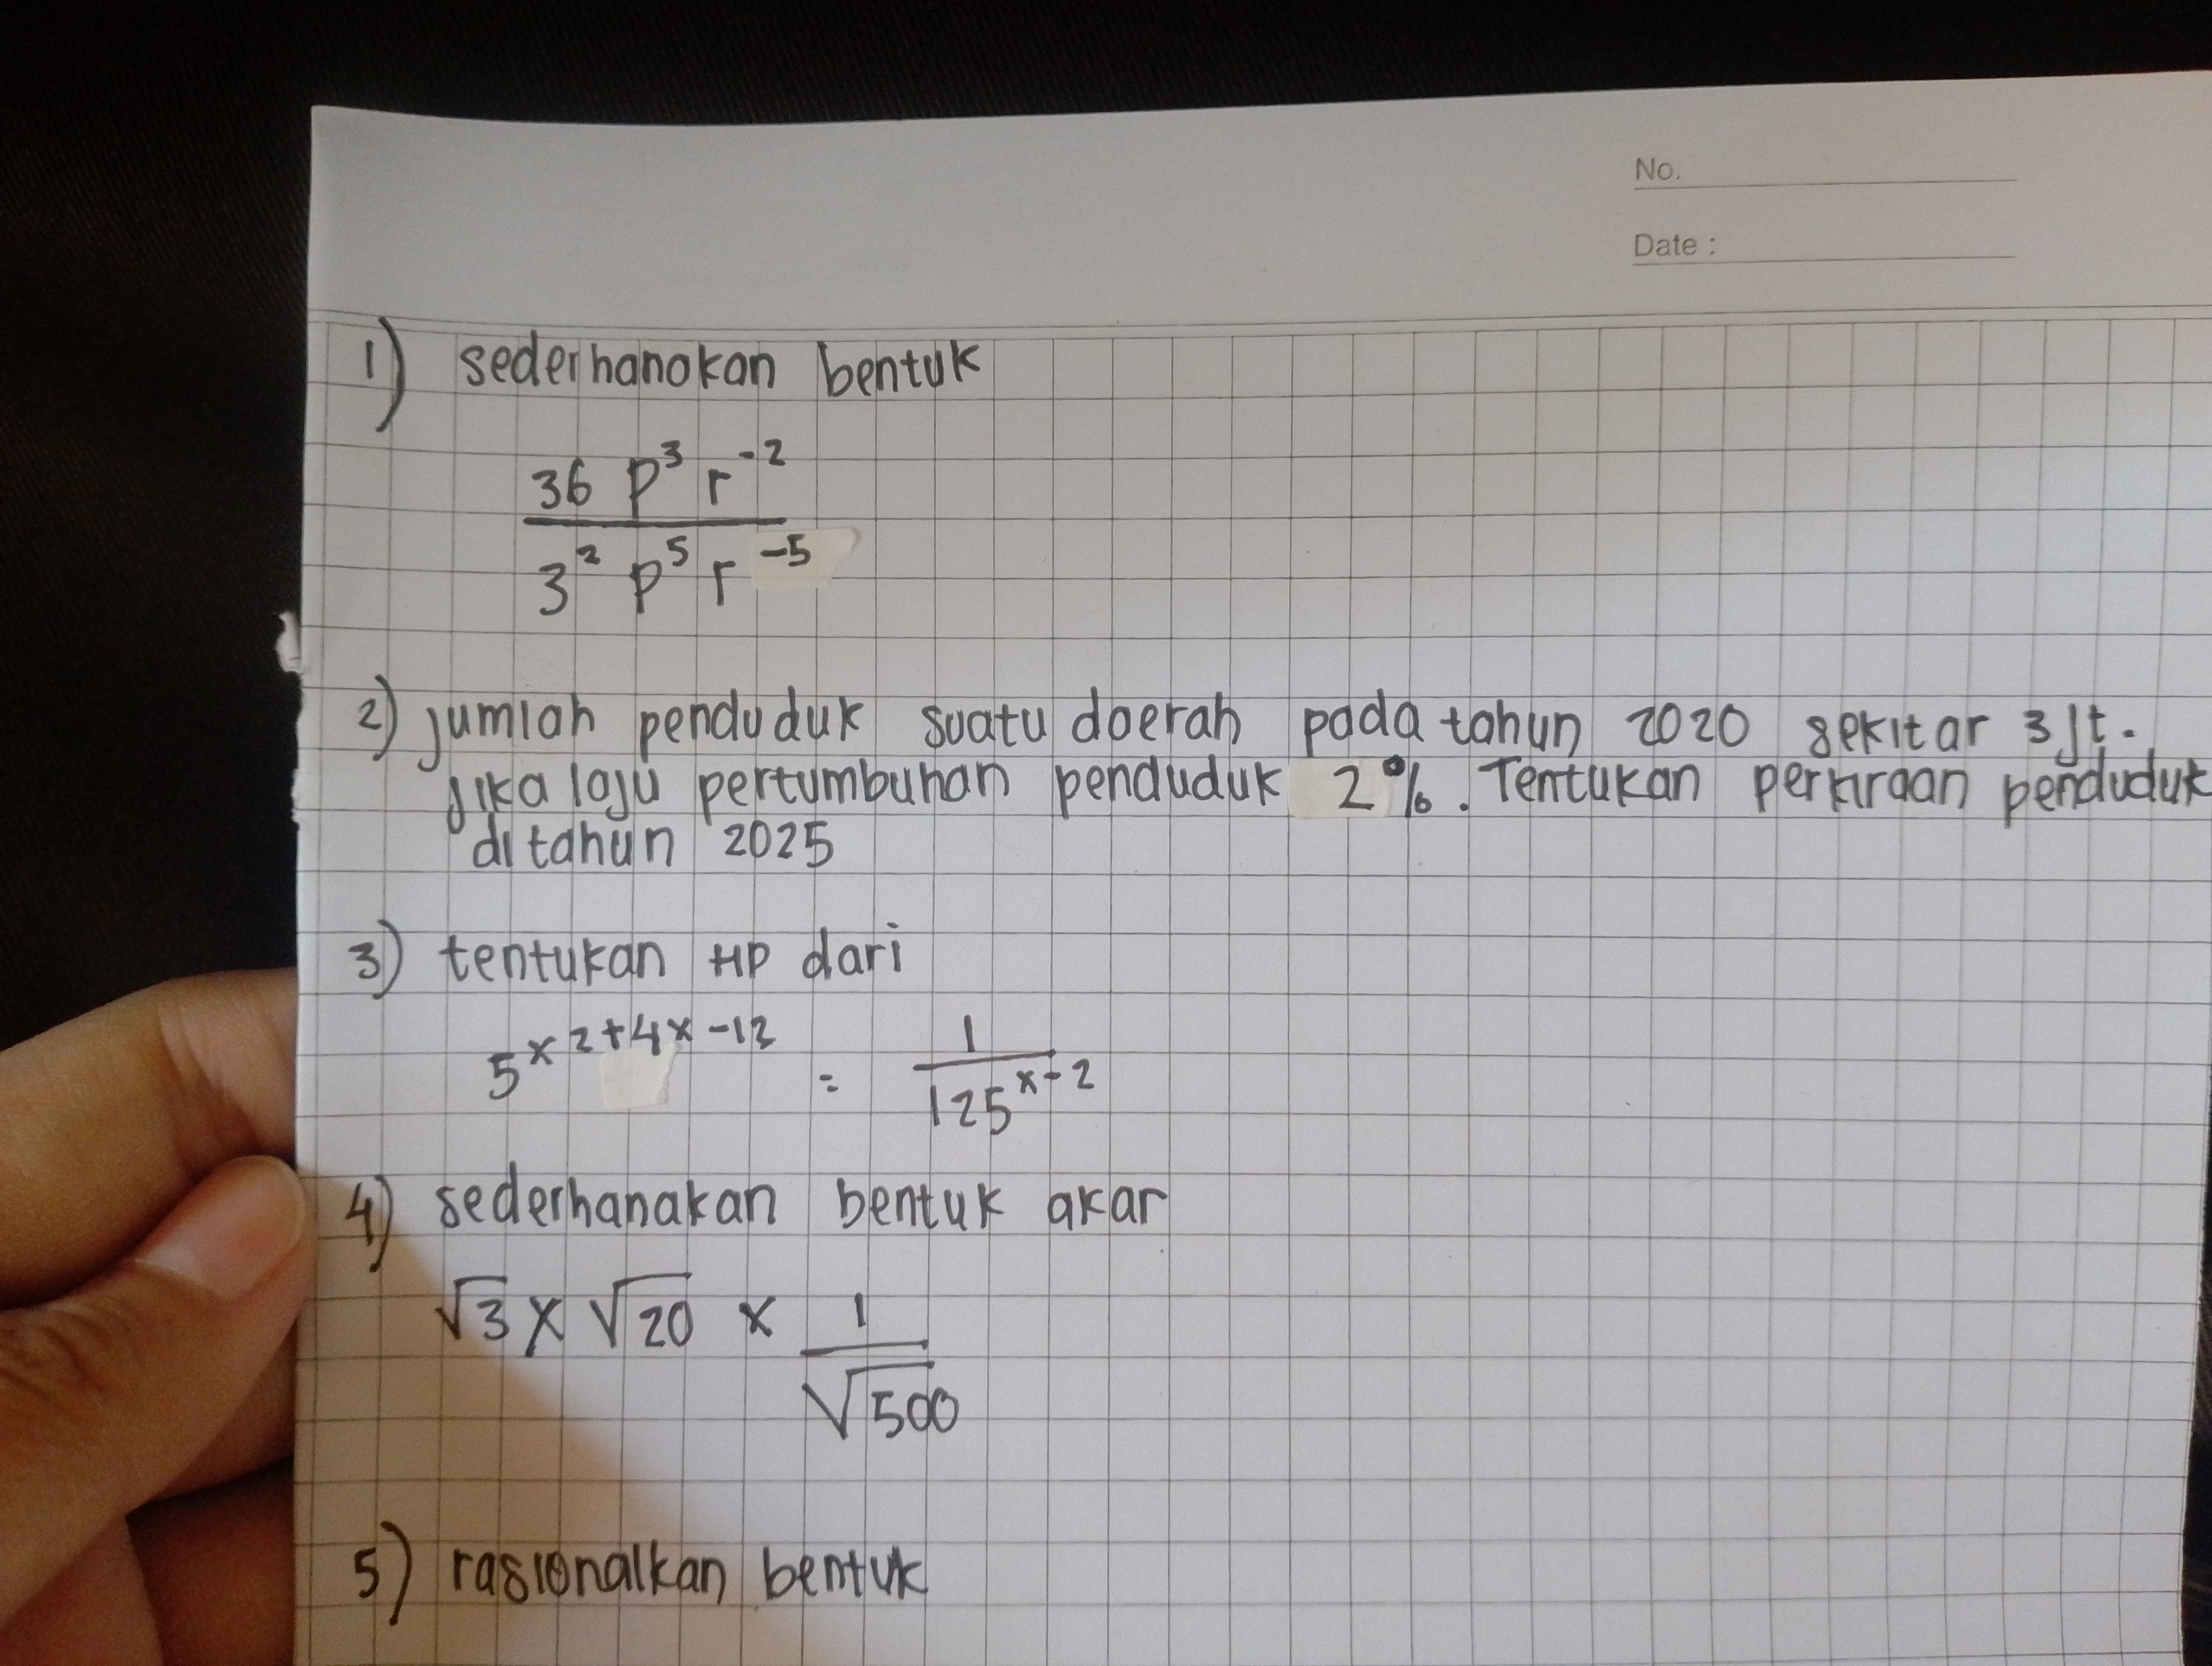 No.
Date :
1) sederhanakan bentuk
36 p³ r⁻²
3² p⁵ r⁻⁵
2) jumlah penduduk suatu daerah pada tahun 2020 sekitar 3 jt.
jika laju pertumbuhan penduduk 2%. Tentukan perkiraan penduduk
di tahun 2025
3) tentukan HP dari
5^(x2+4x-12) = 1/125^(x-2)
4) sederhanakan bentuk akar
√3 x √20 x 1/√500
5) rasionalkan bentuk